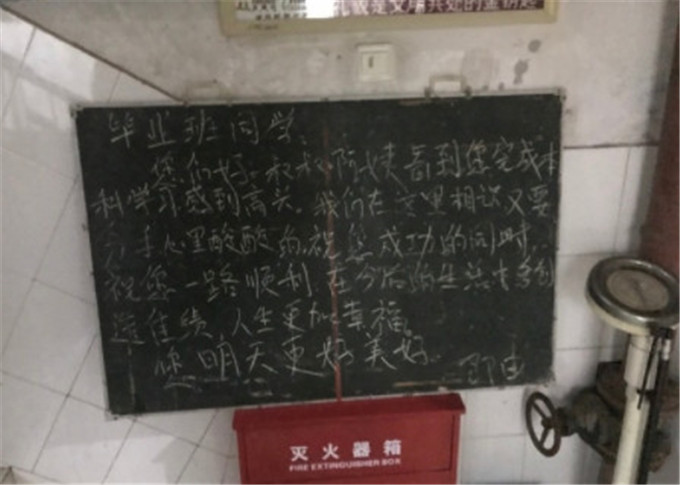 礼貌是文明共处的金钥匙
毕业班同学:
您们好。叔叔阿姨看到您完成本
科学习感到高兴。我们在这里相识又要
分手心里酸酸的,祝您成功的同时,
祝您一路顺利,在今后的生活中多创
造佳绩,人生更加幸福。
您明天更好美好。
灭火器箱
FIRE EXTINGUISHER BOX